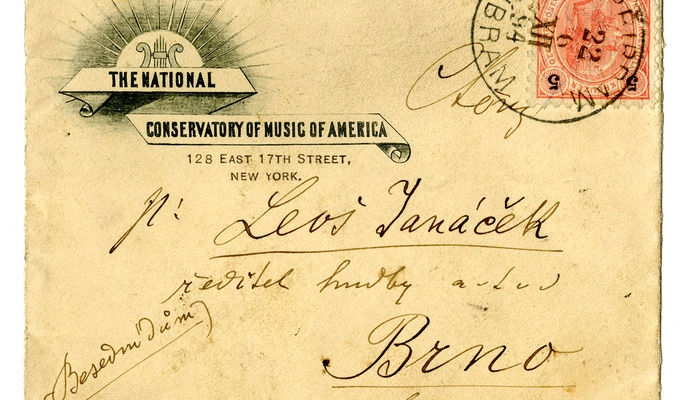 THE NATIONAL
CONSERVATORY OF MUSIC OF AMERICA
128 EAST 17TH STREET,
NEW YORK.
PŘIBRAM
22
6
XII
94
5 5
p:
Leoš Janáček
ředitel hudby a t d
Brno
(Besední dům)